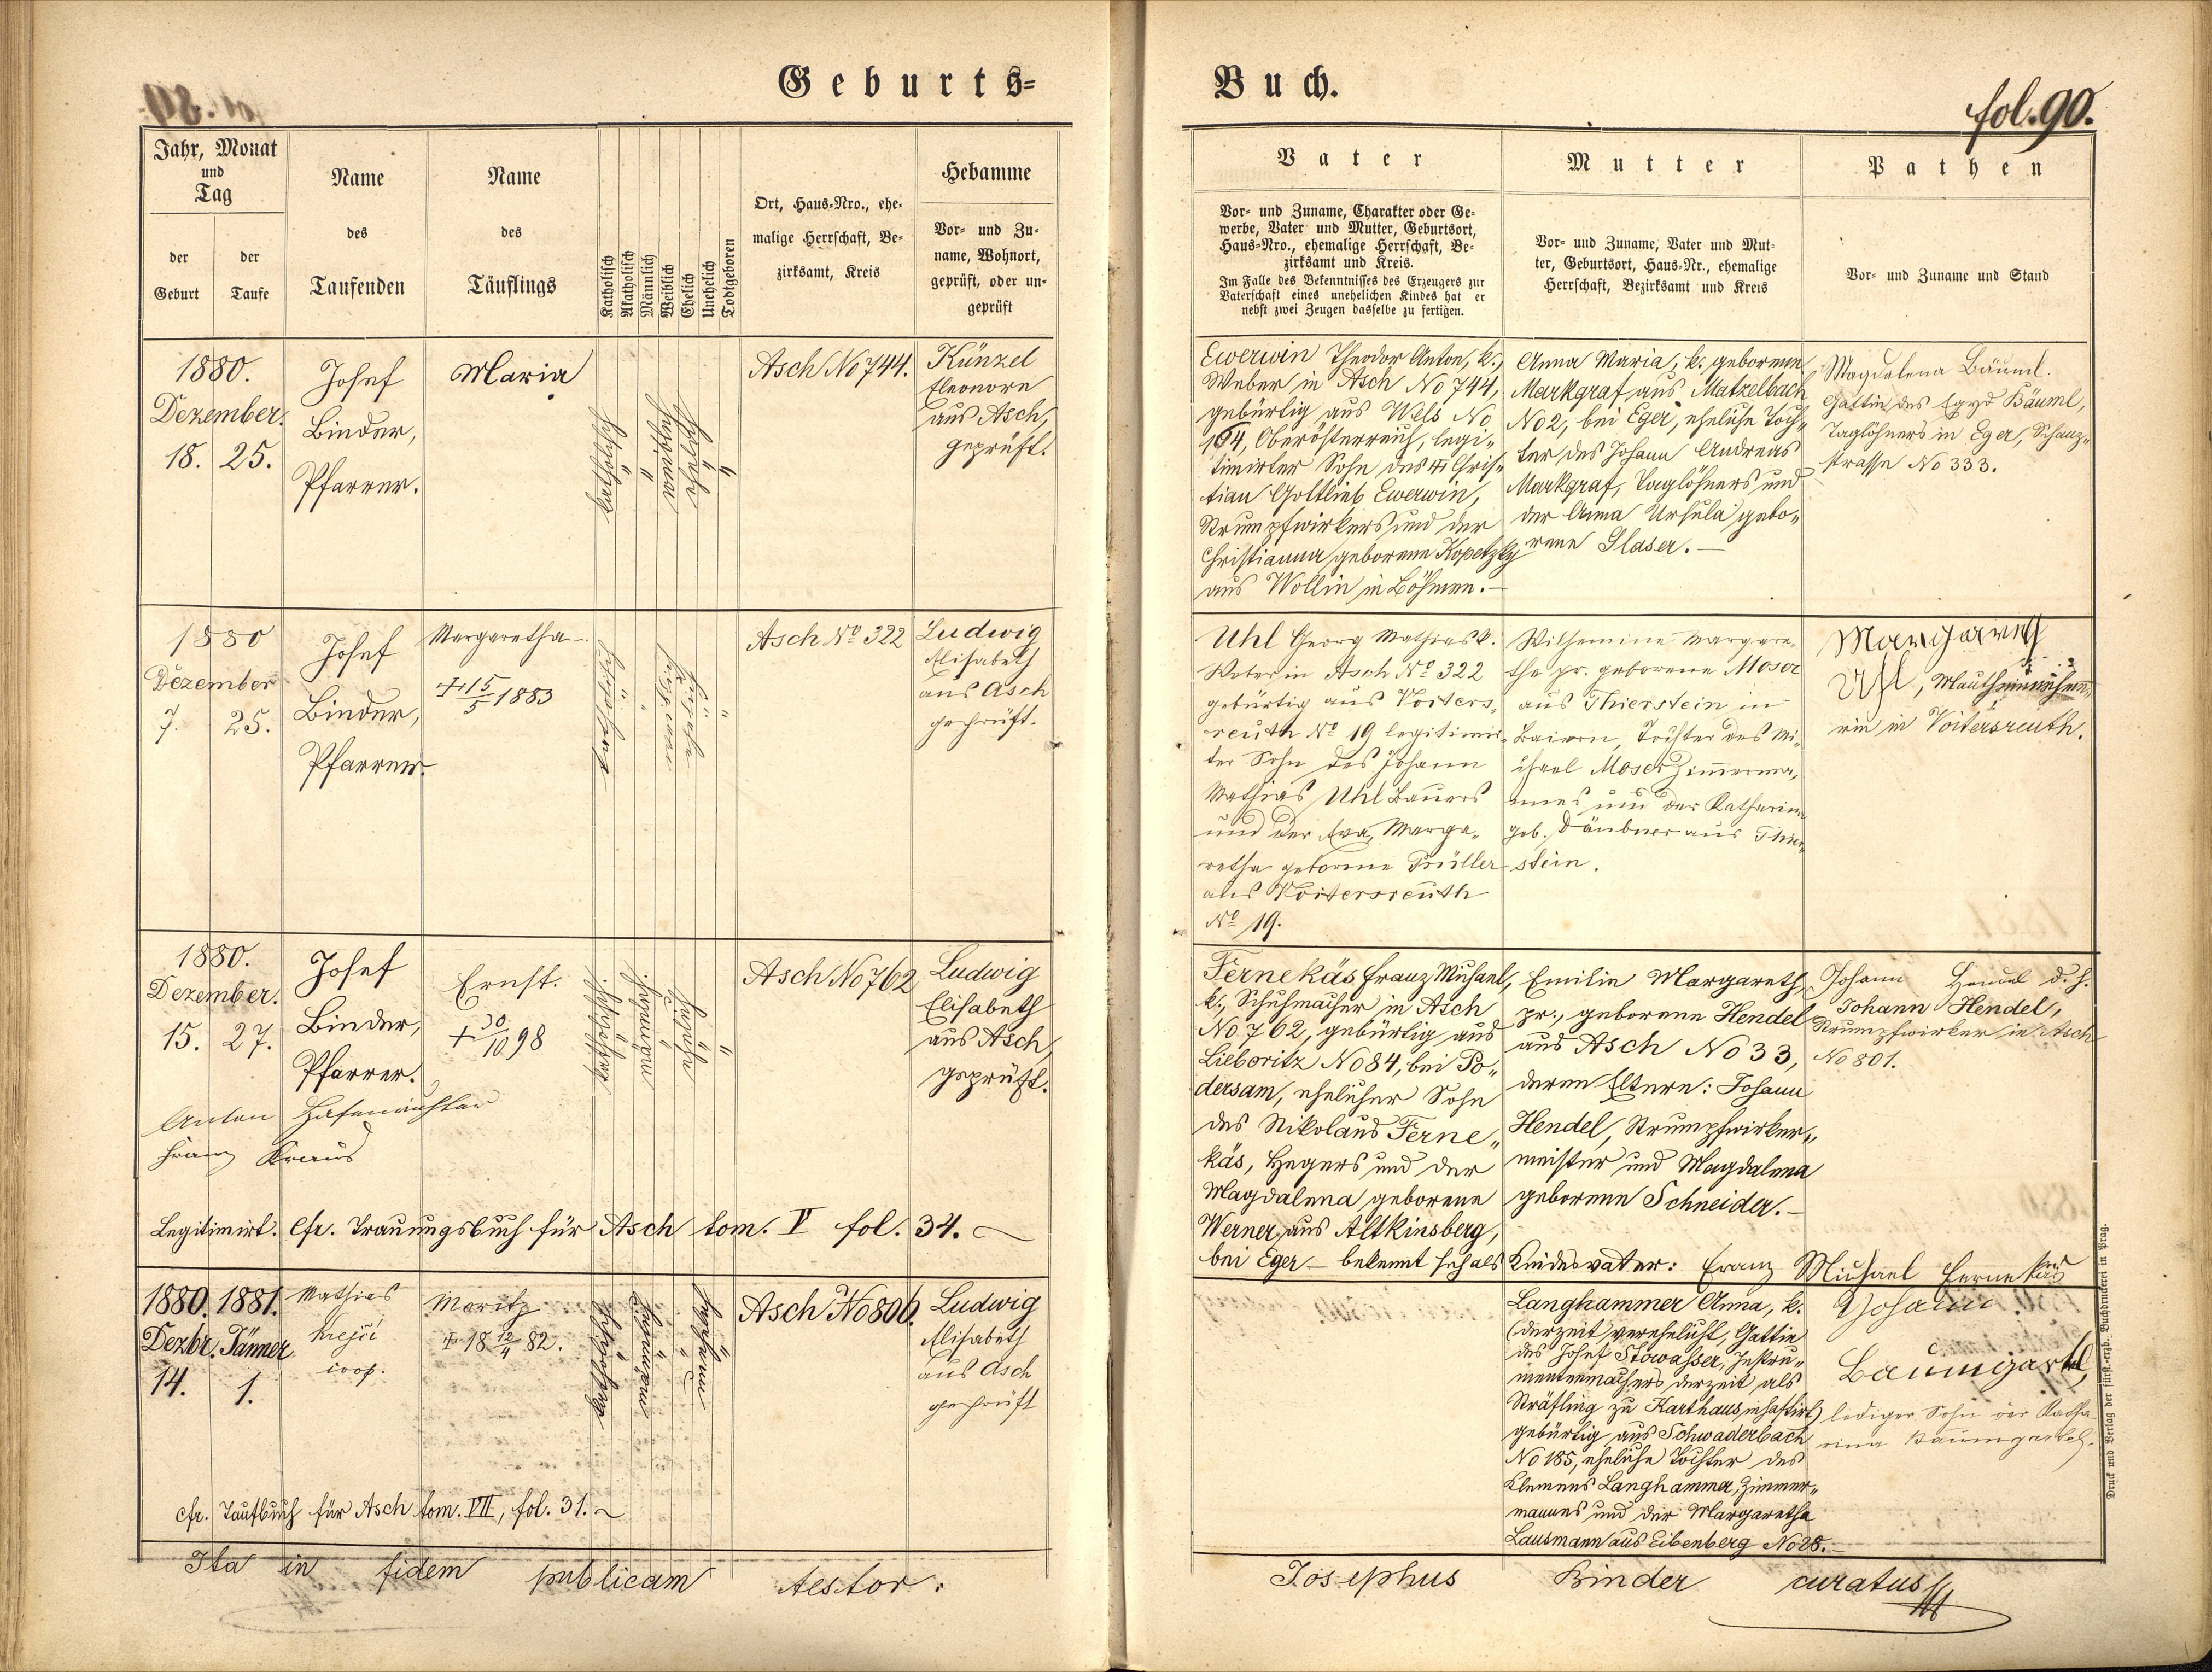 Geburts=
Buch.
fol. 90.
Jahr, Monat
und
Tag
der
Geburt
der
Taufe
Name
des
Taufenden
Name
des
Täuflings
Katholisch
Akatholisch
Männlich
Weiblich
Ehelich
Unehelich
Todtgeboren
Ort, Haus-Nro., ehe-
malige Herrschaft, Be-
zirksamt, Kreis
Hebamme
Vor- und Zu-
name, Wohnort,
geprüft, oder un-
geprüft
Vater
Vor- und Zuname, Charakter oder Ge-
werbe, Vater und Mutter, Geburtsort,
Haus-Nro., ehemalige Herrschaft, Be-
zirksamt und Kreis.
Im Falle des Bekenntnisses des Erzeugers zur
Vaterschaft eines unehelichen Kindes hat er
nebst zwei Zeugen dasselbe zu fertigen.
Mutter
Vor- und Zuname, Vater und Mut-
ter, Geburtsort, Haus-Nr., ehemalige
Herrschaft, Bezirksamt und Kreis
Pathen
Vor- und Zuname und Stand
1880.
Dezember.
18. 25.
Josef
Binder,
Pfarrer.
Maria
katholisch
"
"
Asch No 744.
Künzel
Eleonore
aus Asch,
geprüft.
Ewerwin Theodor Anton, k.,
Weber in Asch No 744,
gebürtig aus Wels No
164, Oberösterreich, legi"
timirter Sohn des Chris"
tian Gottlieb Ewerwin,
Strumpfwirkers und der
Christianna geborene Kopetzky
aus Wollin in Böhmen.—
Anna Maria, k. geborene
Markgraf aus Matzelbach
No 2, bei Eger, eheliche Toch"
ter des Johann Andreas
Markgraf, Taglöhners und
der Anna Ursula gebo"
rene Glaser.—
Magdalena Bäuml.
Gattin des Egyd Bäuml,
Taglöhners in Eger, Schanz"
strasse No 333.
1880
Dezember
7. 25.
Josef
Binder,
Pfarrer.
Margaretha—
+ 15/5 1883
katholisch
"
"
Asch No 322
Ludwig
Elisabeth
aus Asch
geprüft.
Uhl Georg Mathias k.
Weber in Asch No 322
gebürtig aus Voiters"
reuth No 19 legitimir"
ter Sohn des Johann
Mathias Uhl Bauers
und der Eva Marga"
retha geborene Prüller
aus Voitersreuth
No 19.
Wilhemine Margare"
tha pr. geborene Moser
aus Thierstein in
Baiern, Tochter des Mi"
chael Moser Zimmerma"
nnes und der Katharina
geb. Däubner aus Thier"
stein.
Margareth
Uhl,
rin in Voitersreuth.
1880.
Dezember.
15. 27.
Josef
Binder,
Pfarrer.
Ernst.
+ 30/10 98
katholisch
männlich
ehelich
"
Asch No 762
Ludwig
Elisabeth
aus Asch,
geprüft.
Fernekäs Franz Michael,
k., Schuhmacher in Asch
No 762, gebürtig aus
Lieboritz No 84, bei Po"
dersam, ehelicher Sohn
des Nikolaus Ferne"
käs, Hegers und der
Magdalena geborene
Werner aus Altkinsberg,
bei Eger — bekennt sich als Kindesvater: Franz Michael Fernekäs
Emilie Margareth,
pr., geborene Hendel
aus Asch No 33,
deren Eltern: Johann
Hendel, Strumpfwirker"
meister und Magdalena
geborene Schneider.—
Johann Hendel d. h.
Johann Hendel,
Strumpfwirker in Asch
No 801.
Anton Hafenrichter
Franz Kraus
Legitimirt. Cfr. Trauungsbuch für Asch tom. V fol. 34.
1880. 1881.
Dezbr. Jänner
14. 1.
Mathias
Krejčí
coop.
Moritz
+ 18 12/4 82.
katholisch
männlich
"
unehelich
Asch No 806.
Ludwig
Elisabeth
aus Asch
geprüft
Langhammer Anna, k.
(derzeit verehelicht, Gattin
des Josef Stowasser, Instru"
mentenmachers derzeit als
Sträfling zu Karthaus inhaftirt)
gebürtig aus Schwaderbach
No 185, eheliche Tochter des
Klemens Langhammer, Zimmer"
mannes und der Margaretha
Lausmann aus Eibenberg No 28.—
Johann
Baumgartel,
lediger Sohn der Katha"
rina Baumgartel.
cfr. Taufbuch für Asch tom. VII, fol. 31.
Ita in fidem publicam testor:
Josephus Binder curatus
Druck und Verlag der fürst.-erzb. Buchdruckerei in Prag.